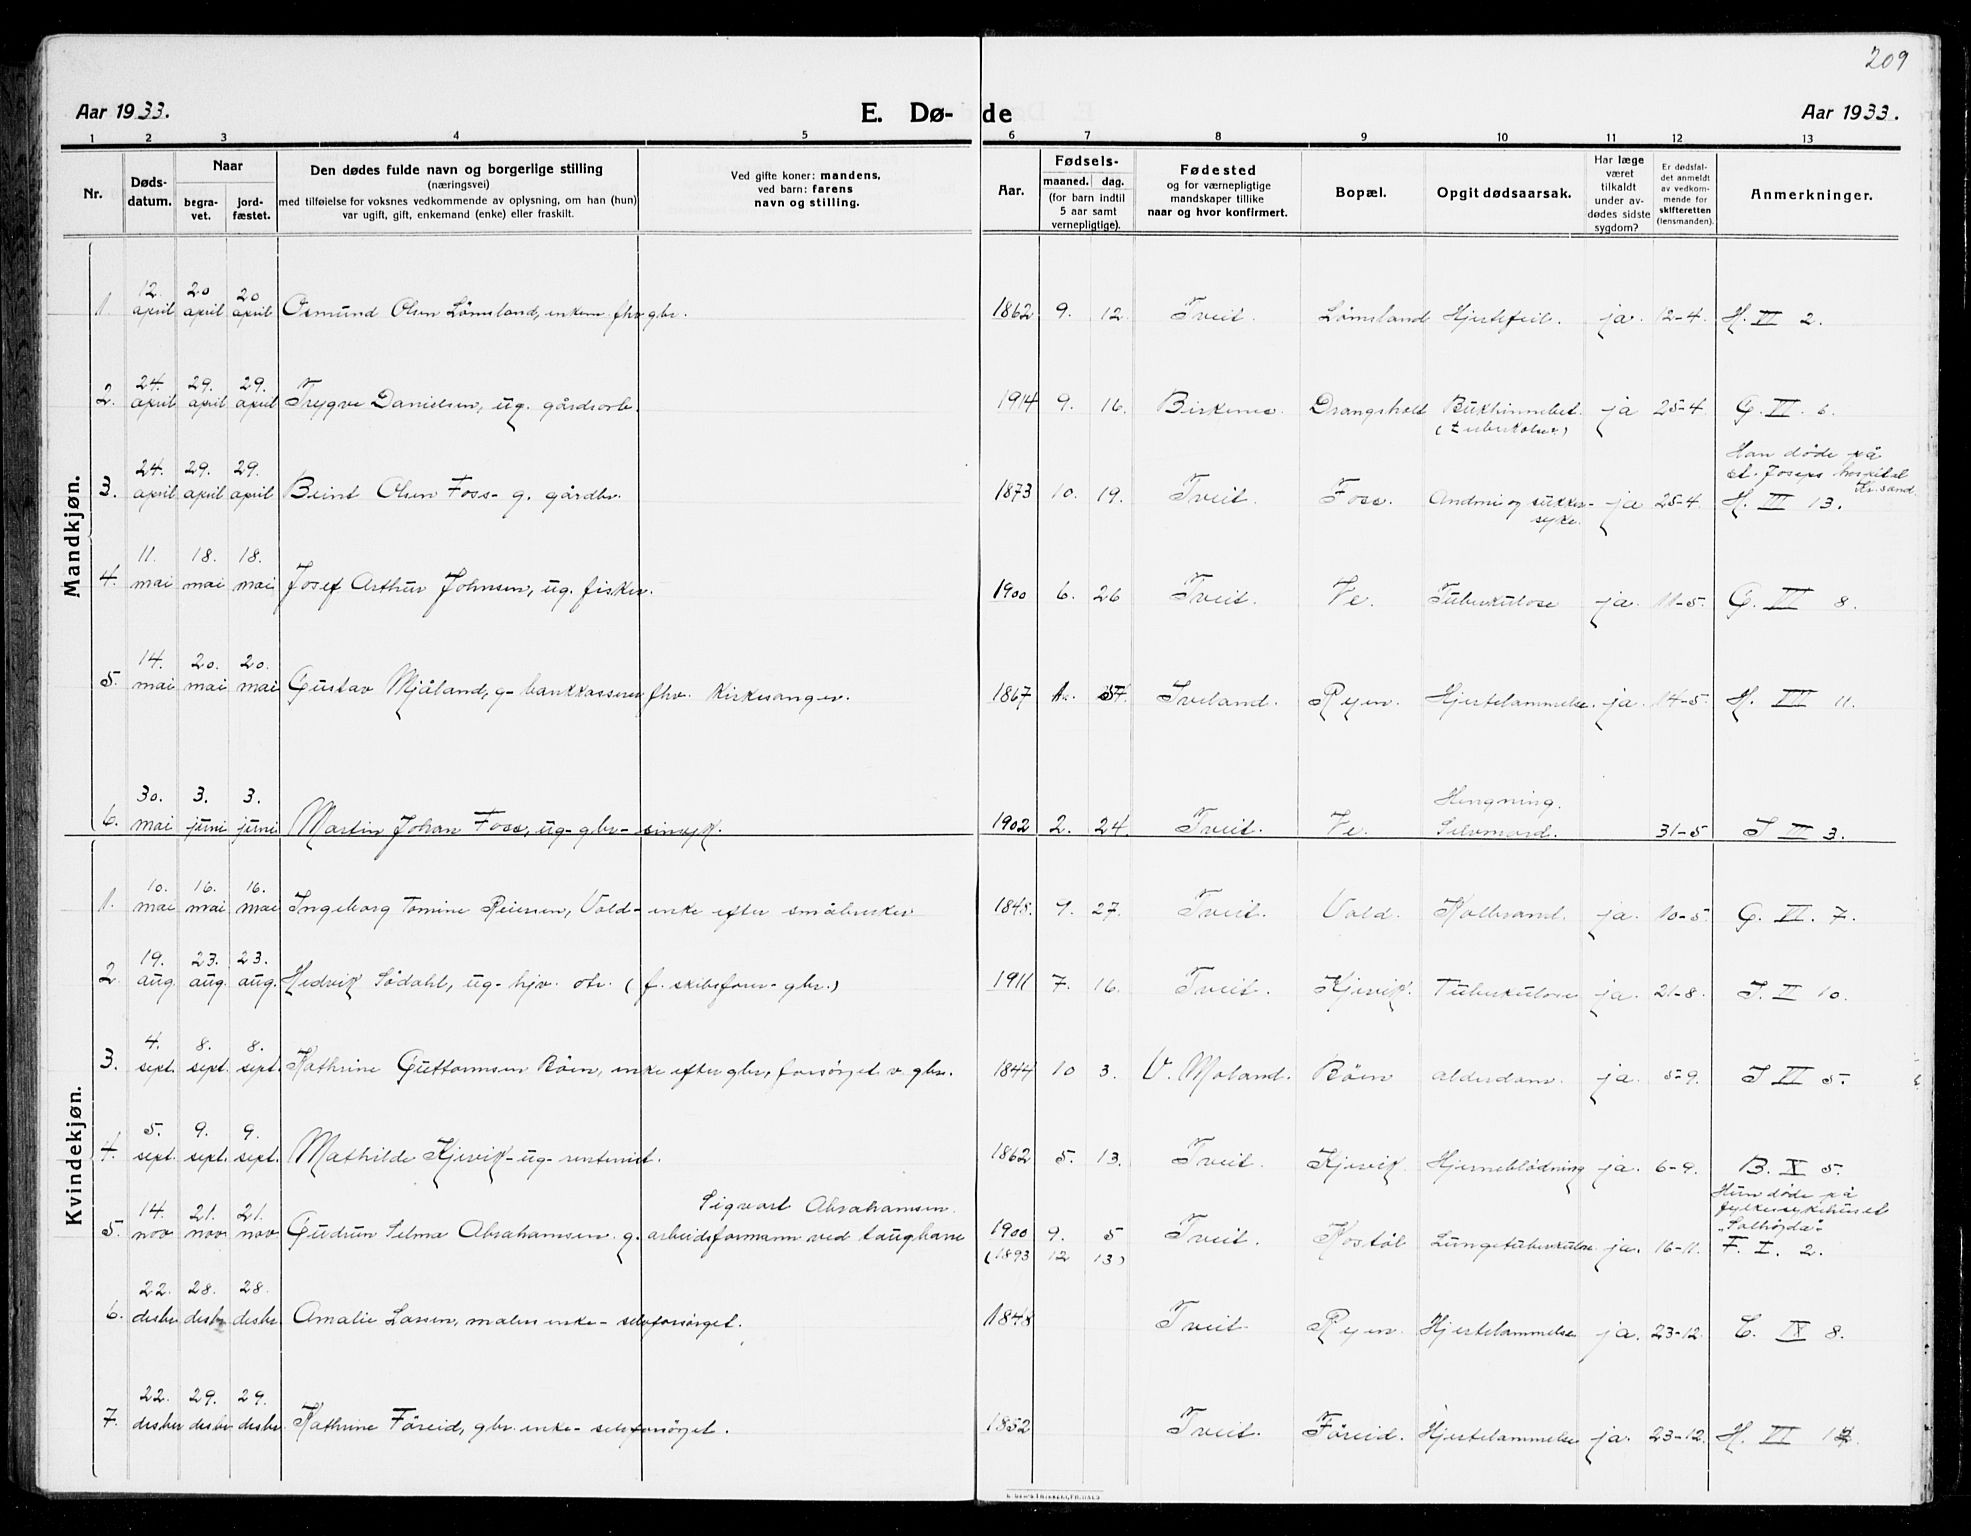 209
Aar 1933. E. Dø- de Aar 1933.
1 2 3 4 5 6 7 8 9 10 11 12 13
Nr.
Døds-
datum.
Naar
begra-
vet.
jord-
fæstet.
Den dødes fulde navn og borgerlige stilling
(næringsvei)
med tilføielse for voksnes vedkommende av oplysning, om han (hun)
var ugift, gift, enkemand (enke) eller fraskilt.
Ved gifte koner: mandens,
ved barn: farens
navn og stilling.
Aar.
Fødsels-
maaned. dag.
(for barn indtil
5 aar samt
vernepligtige).
Fødested
og for værnepligtige
mandskaper tillike
naar og hvor konfirmert.
Bopæl.
Opgit dødsaarsak.
Har læge
været
tilkaldt
under av-
dødes sidste
sygdom?
Er dødsfal-
det anmeldt
av vedkom-
mende for
skifteretten
(lensmanden).
Anmerkninger.
Mandkjøn.
12. 20 20
1. april april april Osmund Olsen Lømsland, enkem. fhv gbr. 1862 9. 12. Tveit. Lømsland Hjertefeil. ja. 12-4. H. VI 2.
24. 29. 29.
2. april april april Trygve Danielsen, ug. gårdsarb. 1914 9. 16. Birkenes. Drangsholt Bukhinnebet. ja 25-4. G. VI. 6.
(tuberkolose)
Han døde på
St. Joseps hospital
Kr.sand.
24. 29. 29.
3. april april april Beint Olsen Foss- g. gårdbr. 1873 10. 19. Tveit. Foss. og sukker- ja 25-4. H. III 13.
syke.
11. 18. 18.
4. mai mai mai Josef Arthur Johnsen, ug. fisker. 1900 6. 26 Tveit. Ve. Tuberkulose ja. 11-5. G. VI 8.
14. 20. 20.
5. mai mai mai Gustav Mjåland, g- bankkasserer fhv. kirkesanger. 1867 Iveland. Ryen. Hjertelammelse. ja. 14-5. H. VII 11.
30. 3. 3. Hengning.
6. mai juni juni Martin Johan Foss, ug- gbr- sinsyk. 1902 2. 24. Tveit. Ve. Selvmord. 31-5 I III 3.
Kvindekjøn.
10. 16. 16.
1. mai mai mai Ingeborg Tomine Reiersen, Vold- enke efter småbruker 1845. 7. 27. Tveit. Vold. Kolbrand. ja. 10-5. G. VI. 7.
19. 23. 23.
2 aug. aug. aug. Hedvik Sødahl, ug- hjv. dtr. (f. skibsfører- gbr.) 1911 7. 16. Tveit. Kjevik. Tuberkulose ja. 21-8. I. II 10.
4. 8. 8.
3. sept. sept. sept. Kathrine Guttormsen Bøen, enke efter gbr, forsørget v. gbr. 1844 10 3. V. Moland. Bøen alderdom. ja. 5-9. I VI 5.
5. 9. 9.
4. sept. sept. sept. Mathilde Kjevik- ug- rentenist. 1862 5. 13. Tveit. Kjevik. Hjerneblødning ja. 6-9. B. X 5.
Hun døde på
fylkesykehuset
"Solhøgda"
14. 21. 21. Sigvart Abrahamsen.
5. nov nov. nov Gudrun Selma Abrahamsen g. arbeidsformann ved taugbane 1900 9. 5 Tveit. Kostøl Lungetuberkulose ja. 16-11. F. I. 2.
(1893 12 13)
22. 28. 28.
6. desbr desbr desbr. Amalie Larsen, maler enke- selvforsørget. 1848 Tveit. Ryen. Hjertelammelse ja. 23-12. C. IX 8.
22. 29. 29.
7. desber desber desbr. Kathrine Føreid, gbr. enke- selvforsørget. 1852 Tveit. Føreid. Hjertelammelse ja. 23-12. H. VI